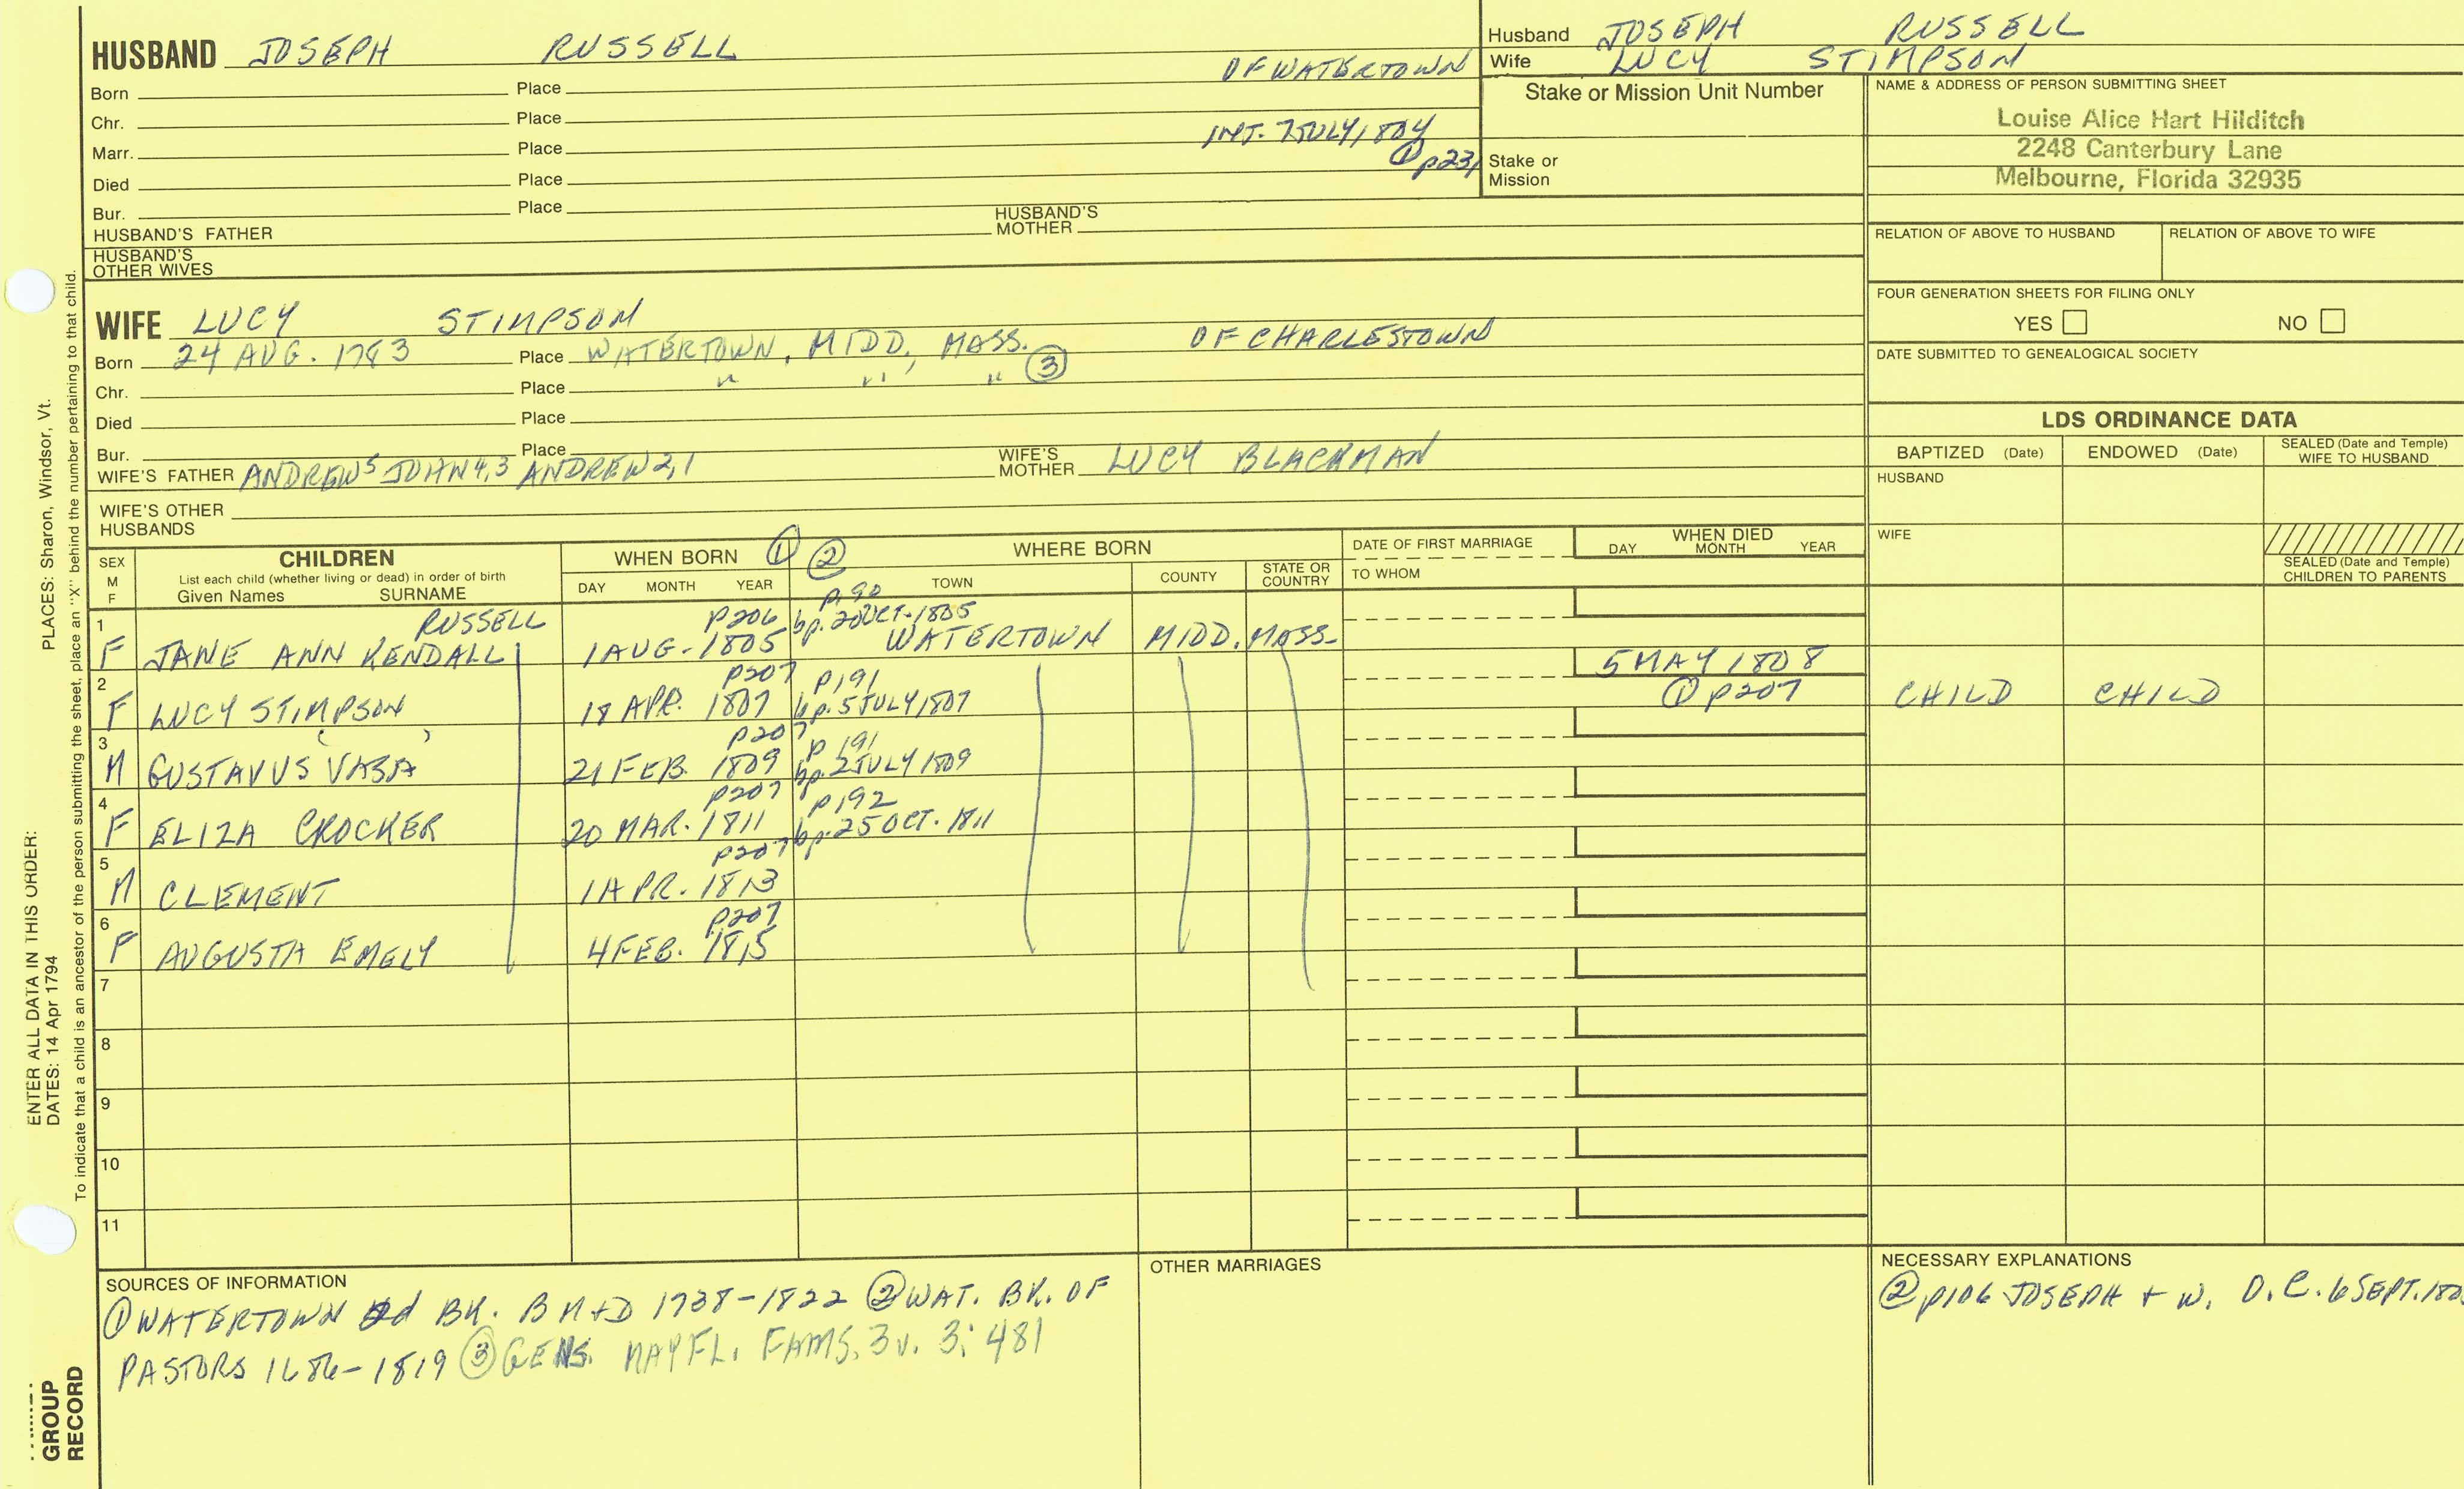 HUSBAND JOSEPH RUSSELL
OF WATERTOWN
Born Place
Chr. Place
INT. 7 JULY 1804
Marr. Place
① p231
Died Place
Bur. Place
HUSBAND'S FATHER HUSBAND'S MOTHER
HUSBAND'S OTHER WIVES
Husband JOSEPH RUSSELL
Wife LUCY STIMPSON
Stake or Mission Unit Number
Stake or Mission
NAME & ADDRESS OF PERSON SUBMITTING SHEET
Louise Alice Hart Hilditch
2248 Canterbury Lane
Melbourne, Florida 32935
RELATION OF ABOVE TO HUSBAND RELATION OF ABOVE TO WIFE
FOUR GENERATION SHEETS FOR FILING ONLY
YES NO
DATE SUBMITTED TO GENEALOGICAL SOCIETY
WIFE LUCY STIMPSON
OF CHARLESTOWN
Born 24 AUG. 1783 Place WATERTOWN, MIDD, MASS.
Chr. Place " " " ③
Died Place
Bur. Place
WIFE'S FATHER ANDREW 5 JOHN 4,3 ANDREW 2,1 WIFE'S MOTHER LUCY BLACKMAN
WIFE'S OTHER HUSBANDS
LDS ORDINANCE DATA
BAPTIZED (Date) ENDOWED (Date) SEALED (Date and Temple) WIFE TO HUSBAND
HUSBAND
WIFE
SEALED (Date and Temple) CHILDREN TO PARENTS
SEX M F
CHILDREN
List each child (whether living or dead) in order of birth
Given Names SURNAME
WHEN BORN ① ②
DAY MONTH YEAR
WHERE BORN
TOWN COUNTY STATE OR COUNTRY
DATE OF FIRST MARRIAGE
TO WHOM
WHEN DIED
DAY MONTH YEAR
RUSSELL p206 p.90
bp. 20 OCT. 1805
1 F JANE ANN KENDALL 1 AUG. 1805 WATERTOWN MIDD. MASS.
p207 p191 5 MAY 1808
2 F LUCY STIMPSON 18 APR. 1807 bp. 5 JULY 1807 ① p207 CHILD CHILD
p207 p 191
3 M GUSTAVUS VASA 21 FEB. 1809 bp. 2 JULY 1809
p207 p192
4 F ELIZA CROCKER 20 MAR. 1811 bp. 25 OCT. 1811
p207
5 M CLEMENT 1 APR. 1813
p207
6 F AUGUSTA EMELY 4 FEB. 1815
7
8
9
10
11
SOURCES OF INFORMATION
① WATERTOWN BK. B M+D 1738-1822 ② WAT. BK. OF
PASTORS 1686-1819 ③ GENS. MAYFL. FAMS. 3v. 3: 481
OTHER MARRIAGES
NECESSARY EXPLANATIONS
② p106 JOSEPH + W. O.C. 6 SEPT. 180
ENTER ALL DATA IN THIS ORDER:
DATES: 14 Apr 1794
PLACES: Sharon, Windsor, Vt.
To indicate that a child is an ancestor of the person submitting the sheet, place an "X" behind the number pertaining to that child.
GROUP
RECORD